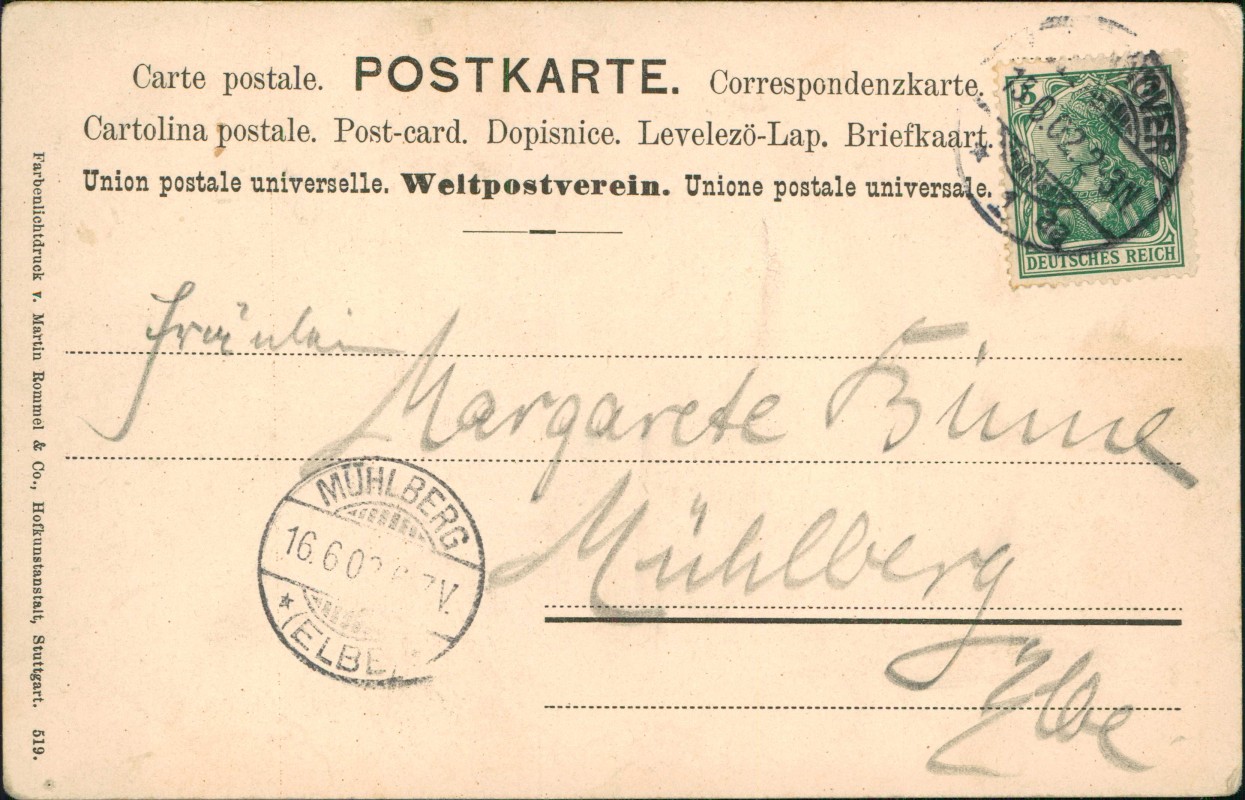 Carte postale. POSTKARTE. Correspondenzkarte.
Cartolina postale. Post-card. Dopisnice. Levelezö-Lap. Briefkaart.
Union postale universelle. Weltpostverein. Unione postale universale.
5
DEUTSCHES REICH
Fräulein
Margarete Binne
Mühlberg
Elbe
MÜHLBERG
16.6.02 7V.
(ELBE)
Farbenlichtdruck v. Martin Rommel & Co., Hofkunstanstalt, Stuttgart. 519.